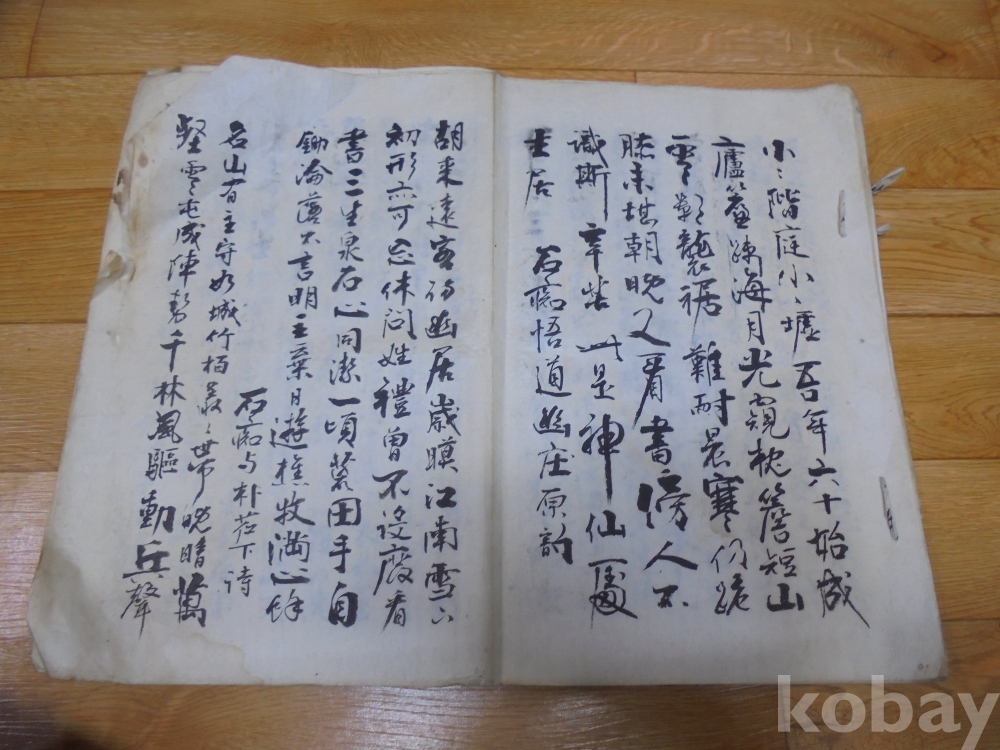 小〻階庭小〻墟吾年六十始成
廬簷疎海月光窺枕簷短山
雲影襲裾難耐晨寒仍
膝未堪朝晚又看書傍人不
識斯辛苦此是神仙一
士居 石 悟道幽庄原韵
胡來遠客 幽居歲暮江南雪六
初形亦可忘休問姓禮曾不設废看
書三生泉石心同潔一頃荒田手自
鋤淪落不言明主棄日遊樵牧滿心
石 与朴 下詩
名山有主守如城竹栢叢〻帶晚晴萬
壑雲屯成陣勢千林風驅動兵聲
kobay